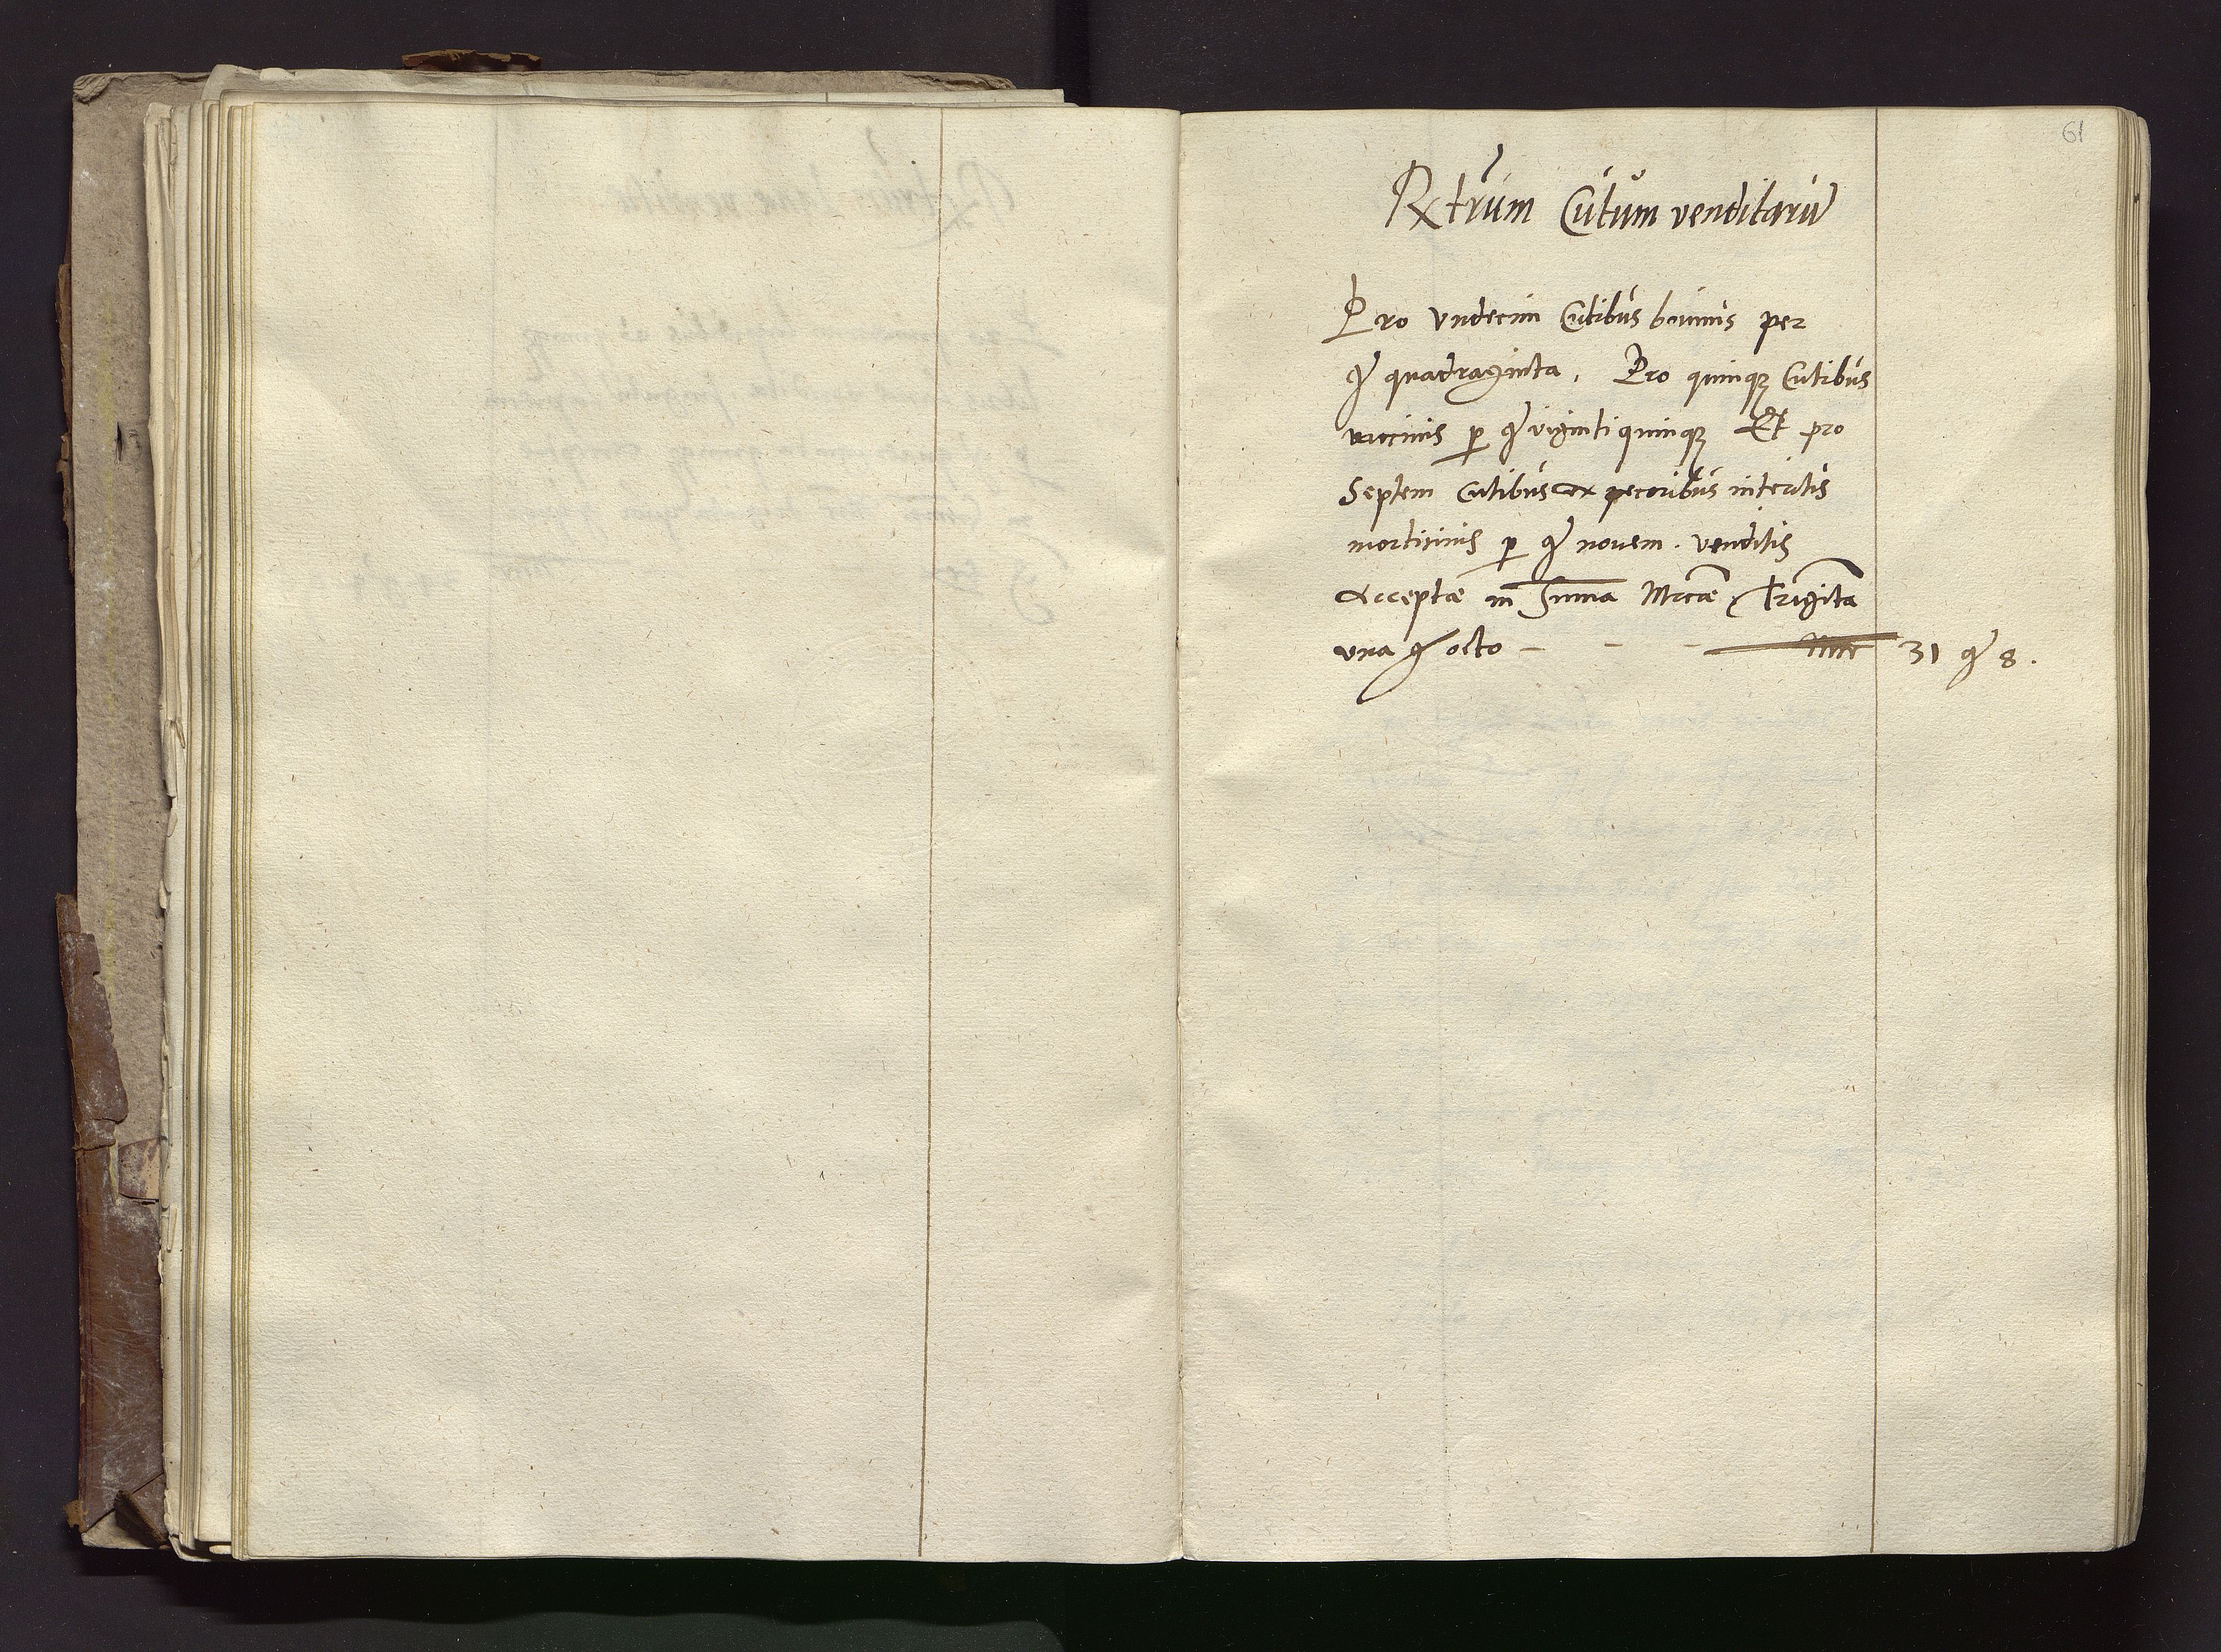 61
Rxtrum Cutum venditarū
Pro Vndecim Cutibus bouinis per
gr quadraginta, Pro quinqꝫ Cutibus
vaccinis p gr viginti quinqꝫ Et pro
Septem Cutibus ex pecoribus interitis
morticinis p gr nouem. venditis
Acceptae in Summa Mrcae Triginta
vna gr octo - - - Mrc 31 gr 8.